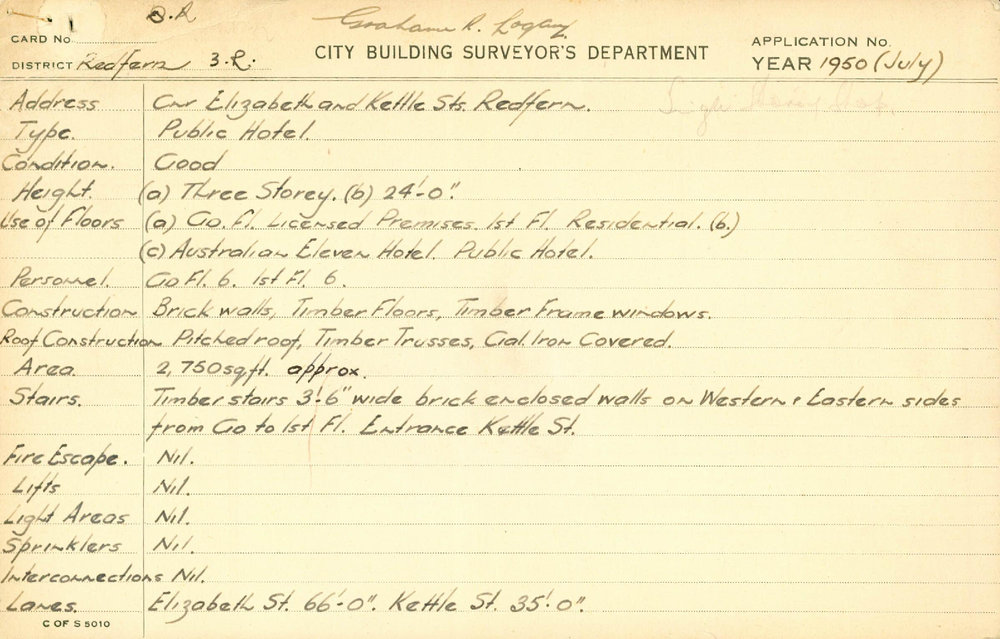 B.A
Grahame R. Logan
CARD No.
CITY BUILDING SURVEYOR'S DEPARTMENT
APPLICATION No.
DISTRICT Redfern 3.R.
YEAR 1950 (July)
Address Cnr Elizabeth and Kettle Sts. Redfern.
Type. Public Hotel.
Condition. Good
Height. (a) Three Storey. (b) 24'-0".
Use of Floors (a) Go. Fl. Licensed Premises. 1st Fl. Residential. (b.)
(c) Australian Eleven Hotel. Public Hotel.
Personnel. Go Fl. 6. 1st Fl. 6.
Construction Brick walls, Timber Floors, Timber Frame windows.
Roof Construction Pitched roof, Timber Trusses, Gal. Iron Covered.
Area. 2,750 sq ft. approx.
Stairs. Timber stairs 3'-6" wide brick enclosed walls on Western & Eastern sides
from Go to 1st Fl. Entrance Kettle St.
Fire Escape. Nil.
Lifts Nil.
Light Areas Nil.
Sprinklers Nil.
Interconnections Nil.
Lanes. Elizabeth St. 66'-0". Kettle St. 35'-0".
C OF S 5010